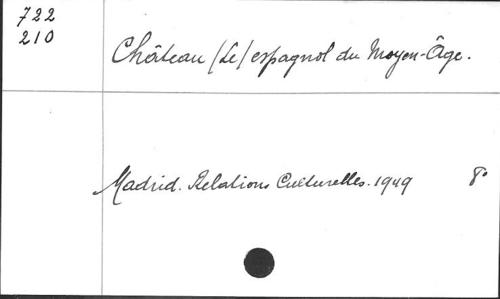 722
210
Château (Le) espagnol du Moyen-Âge.
Madrid. Relations Culturelles. 1949 8°